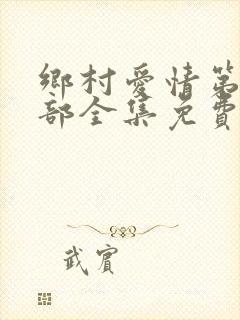 鄉村愛情第
部全集免費
武賓